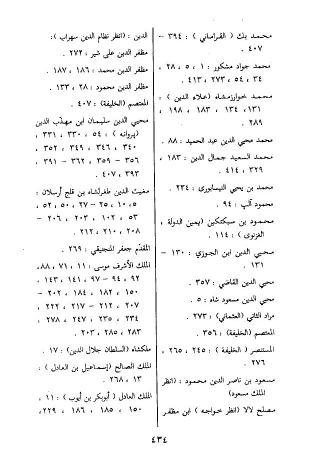 محمد بك (القراماني) : ٣٩٤ –
٤٠٧ .
محمد جواد مشكور : ١ ، ٥ ، ٢٨ ،
٣٤ ، ٥٤ ، ٢٧٣ ، ٤١٣ .
محمد خوارزمشاه (علاء الدين) :
١٣١ ، ١٣٤ ، ١٨٣ ، ١٩٨ ،
٢٨٩ .
محمد محيي الدين عبد الحميد : ٨٨ .
محمد السعيد جمال الدين : ١٨٣ ،
٣٢٩ ، ٤١٤ .
محمد بن يحيى النيسابوري : ٢٣٤ .
محمود آلب : ٩٤ .
محمود بن سبكتكين (يمين الدولة ،
الغزنوي) : ١١٤ .
محيي الدين ابن الجوزي : ١٣٠ –
١٣١ .
محيي الدين القاضي : ٣٥٧ .
محيي الدين مسعود شاه : ٥ .
مراد الثاني (العثماني) : ٢٧٣ .
المعتصم (الخليفة) : ٣٥٦ .
المستنصر (الخليفة) : ٢٤٥ ، ٢٦٥ ،
٢٧٦ .
مسعود بن ناصر الدين محمود : (انظر
الملك مسعود)
مصلح لالا (انظر خواجه) ابن مظفر
الدين : (انظر نظام الدين سهراب) :
مظفر الدين علي شير : ٢٧٢ .
مظفر الدين محمد : ١٨٦ ، ١٨٧ .
مظفر الدين محمود : ٢٨ ، ١٣٣ .
المعتصم (الخليفة) : ٤٠٧ .
محيي الدين سليمان ابن مهذب الدين
(پروانه) : ٥٤ ، ٣٣٠ ، ٣٣١ ،
٣٤٠ ، ٣٤٦ ، ٣٤٩ ، ٣٥٢ ،
٣٥٦ – ٣٥٩ ، ٣٦٢ – ٣٩١ ،
٣٩٣ ، ٤٠٧ .
مغيث الدين طغرلشاه بن قلج أرسلان :
٥ ، ١٠ ، ٢٥ – ٢٧ ، ٥٠ ، ٥٢ ،
٥٣ ، ١٠٢ ، ٢٠٣ ، ٢٠٦ –
٢٠٨ ، ٢١٠ ، ٢١٢ .
المقدّم جعفر المنجنيقي : ٢٦٩ .
الملك الأشرف موسى : ١١ ، ٧١ ، ٨٨ ،
٩٢ ، ٩٤ – ٩٧ ، ١٤١ ، ١٤٣ ،
١٥٠ ، ١٨٢ ، ١٨٤ ، ٢٠٢ –
٢٠٧ ، ٢١٢ – ٢١٧ ، ٢٢٢ ،
٢٣٤ ، ٢٣٥ ، ٢٤٧ ، ٢٧٨ ،
٢٨٣ ، ٢٨٥ ، ٢٠٣ .
ملكشاه (السلطان جلال الدين) : ١٧ .
الملك الصالح (إسماعيل بن العادل) :
١٣ ، ٢٦٨ .
الملك العادل (أبوبكر بن أيوب) : ١١ ،
١٥٠ ، ١٨٥ ، ١٨٦ ، ٢٢٩ ،
٤٣٤